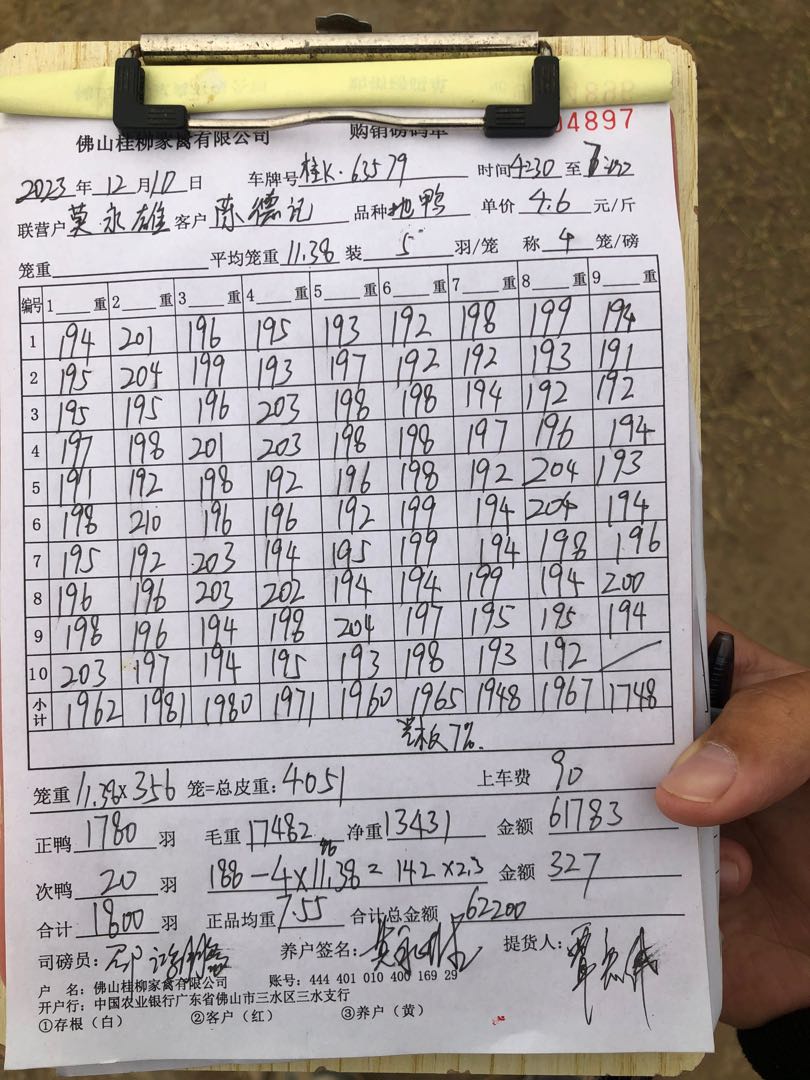 佛山桂柳家禽有限公司 购销磅码单 04897
2023年12月10日 车牌号桂K·63579 时间4230至
联营户莫永雄客户陈德记 品种地鸭 单价4.6元/斤
笼重 平均笼重11.38装5羽/笼 称4笼/磅
编号 1 重 2 重 3 重 4 重 5 重 6 重 7 重 8 重 9 重
1 194 201 196 195 193 192 198 199 194
2 195 204 199 193 197 192 192 193 191
3 195 195 196 203 198 198 194 192 192
4 197 198 201 203 198 198 197 196 194
5 191 192 198 192 196 198 192 204 193
6 198 210 196 196 192 199 194 204 194
7 195 192 203 194 195 199 194 198 196
8 196 196 203 202 194 194 199 194 200
9 198 196 194 198 204 197 195 195 194
10 203 197 194 195 193 198 193 192 /
小计 1962 1981 1980 1971 1960 1965 1948 1967 1748
板7%.
笼重11.38×356笼=总皮重:4051 上车费 90
正鸭1780羽 毛重17482 净重13431 金额61783
次鸭20羽 188-4×11.38=142×2.3 金额327
合计1800羽 正品均重7.55 合计总金额62200
司磅员: 养户签名: 提货人:
户 名:佛山桂柳家禽有限公司 账号:444 401 010 400 169 29
开户行:中国农业银行广东省佛山市三水区三水支行
①存根(白) ②客户(红) ③养户(黄)